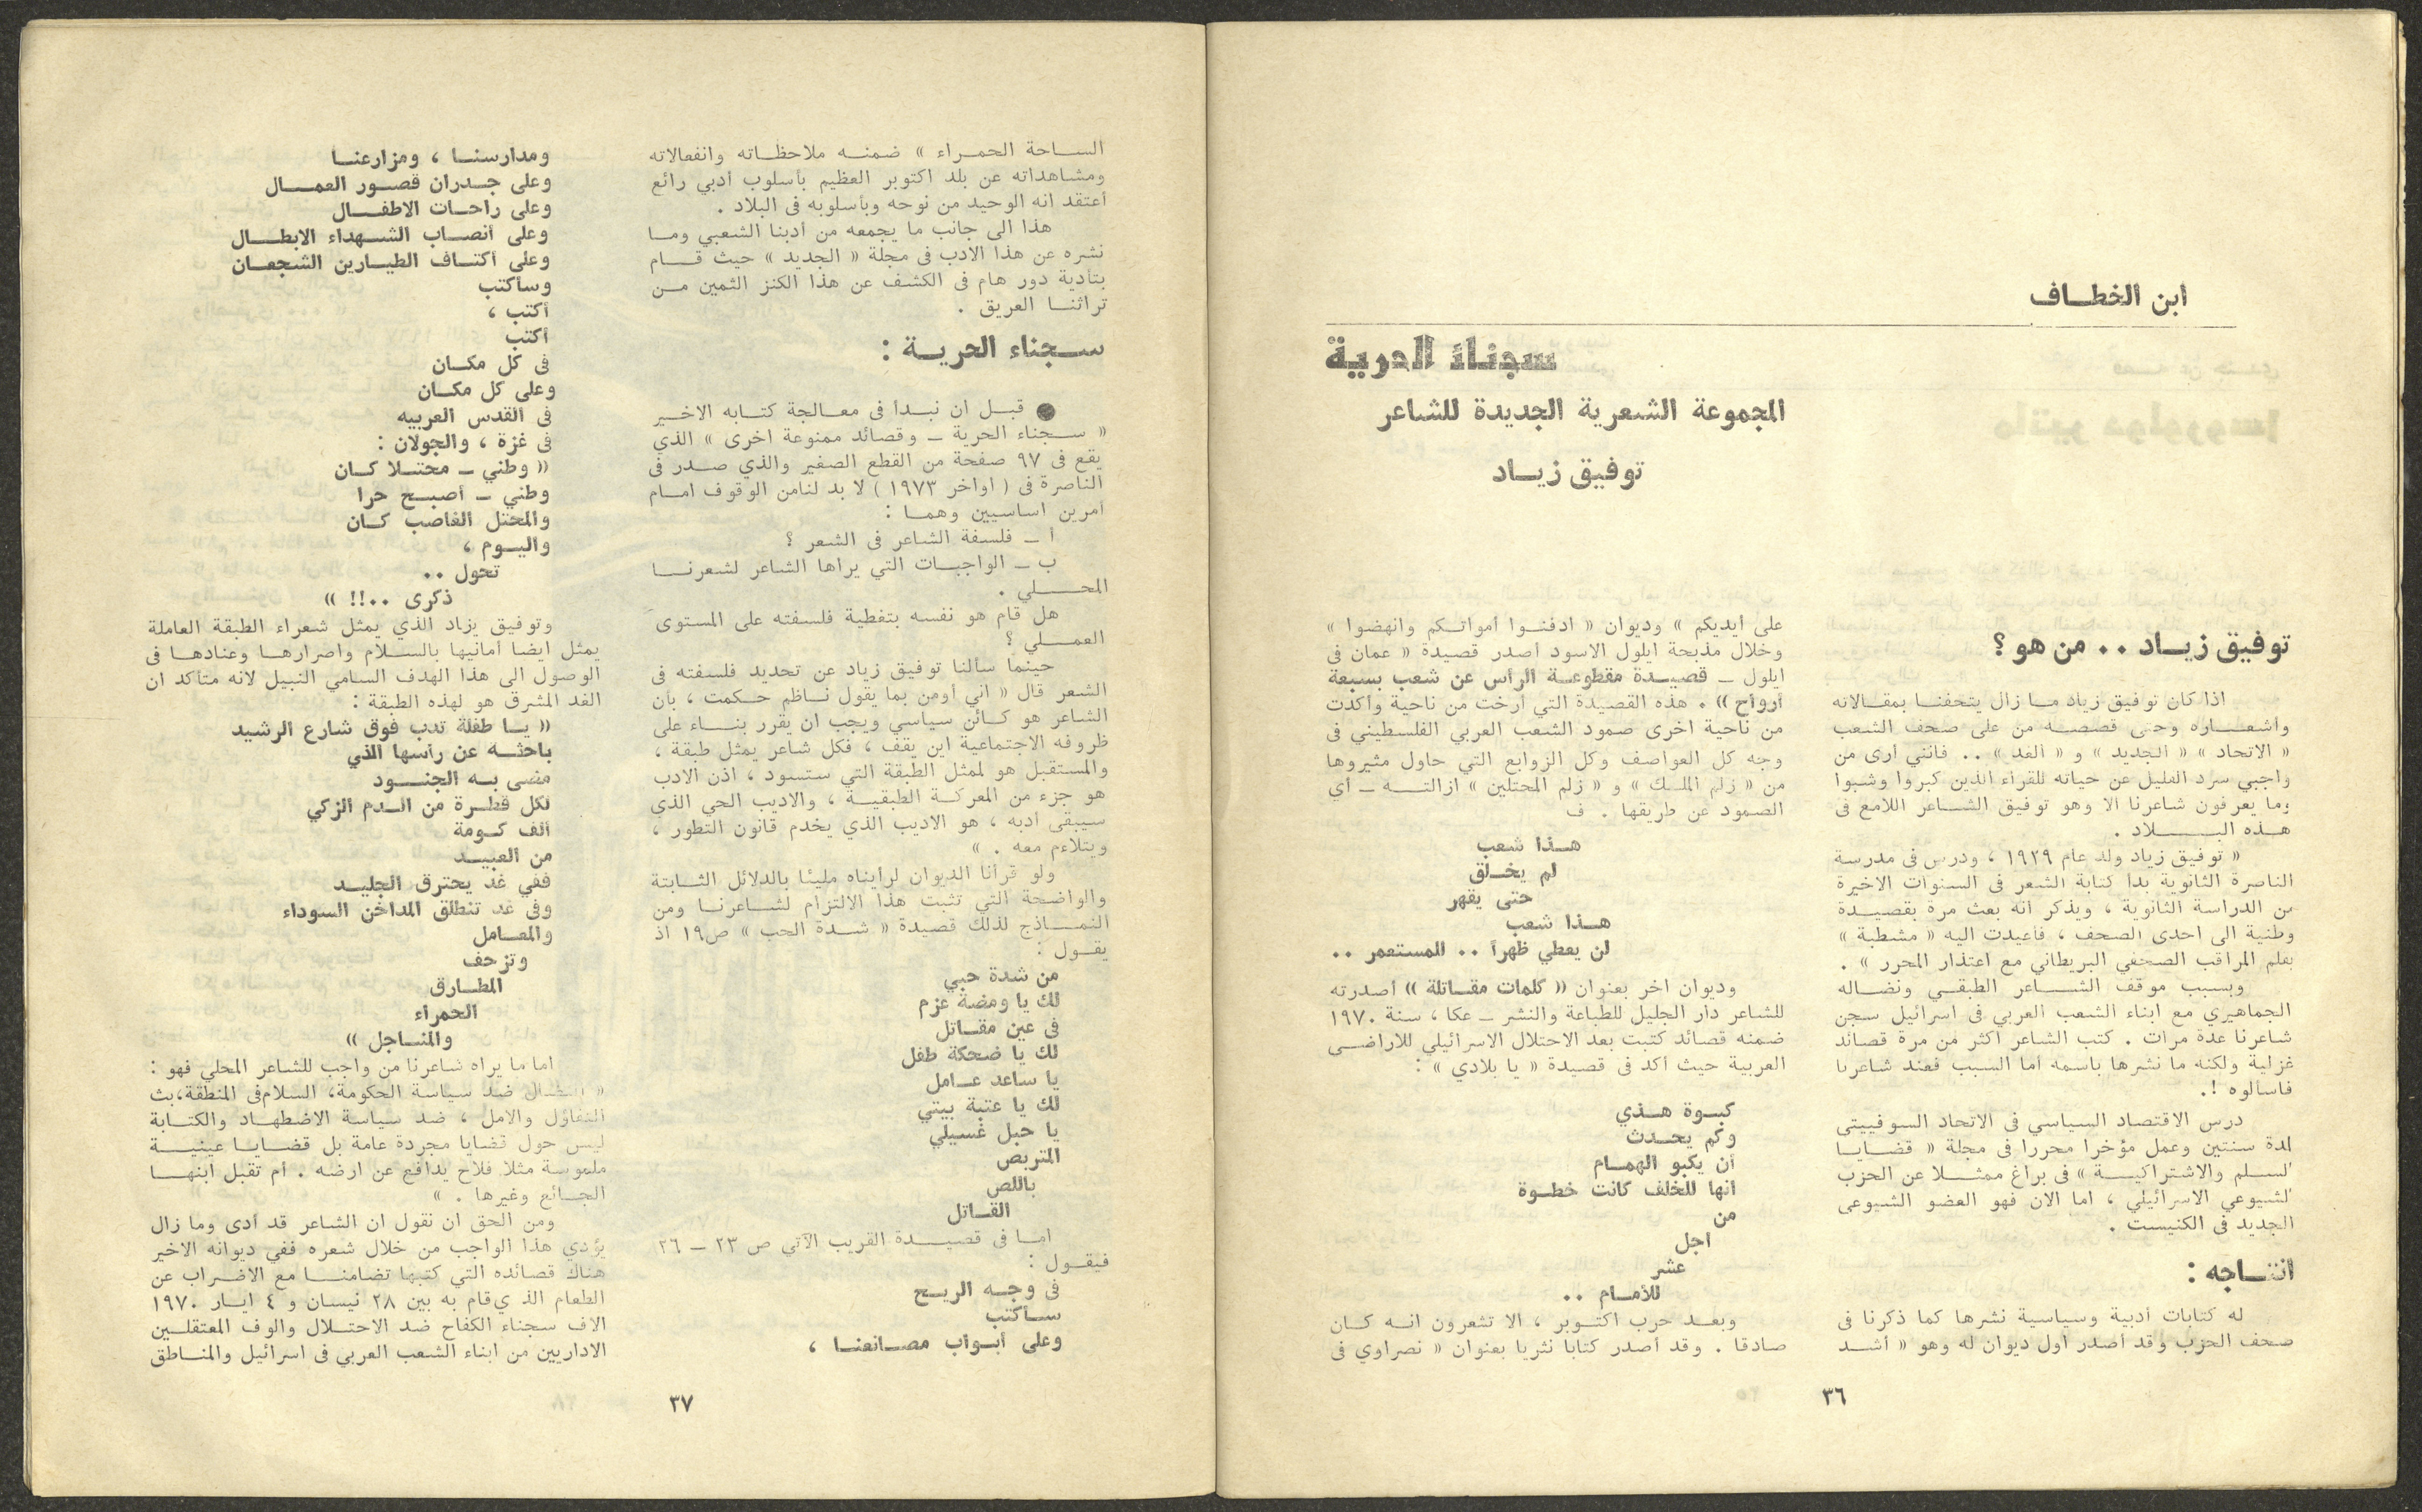 ابن الخطاف
سجناء الحرية
المجموعة الشعرية الجديدة للشاعر
توفيق زياد
توفيق زياد .. من هو ؟
اذا كان توفيق زياد ما زال يتحفنا بمقالاته
واشعاره وحتى قصصه من على صحف الشعب
« الاتحاد » « الجديد » و « الغد » .. فانني أرى من
واجبي سرد القليل عن حياته للقراء الذين كبروا وشبوا
وما يعرفون شاعرنا الا وهو توفيق الشاعر اللامع فى
هذه البلاد .
« توفيق زياد ولد عام ١٩٢٩ ، ودرس فى مدرسة
الناصرة الثانوية بدأ كتابة الشعر فى السنوات الاخيرة
من الدراسة الثانوية ، ويذكر انه بعث مرة بقصيدة
وطنية الى احدى الصحف ، فأعيدت اليه « مشطبة »
بقلم المراقب الصحفي البريطاني مع اعتذار المحرر » .
وبسبب موقف الشاعر الطبقي ونضاله
الجماهيري مع ابناء الشعب العربي فى اسرائيل سجن
شاعرنا عدة مرات . كتب الشاعر اكثر من مرة قصائد
غزلية ولكنه ما نشرها باسمه أما السبب فعند شاعرنا
فاسألوه !.
درس الاقتصاد السياسي في الاتحاد السوفييتى
لمدة سنتين وعمل مؤخرا محررا فى مجلة « قضايا
السلم والاشتراكية » فى براغ ممثلا عن الحزب
الشيوعي الاسرائيلي ، اما الان فهو العضو الشيوعى
الجديد فى الكنيست .
انتاجه :
له كتابات أدبية وسياسية نشرها كما ذكرنا فى
صحف الحزب وقد أصدر اول ديوان له وهو « أشد
على أيديكم » وديوان « ادفنوا أمواتكم وانهضوا »
وخلال مذبحة ايلول الاسود أصدر قصيدة « عمان فى
ايلول – قصيدة مقطوعة الرأس عن شعب بسبعة
أرواح » . هذه القصيدة التي أرخت من ناحية وأكدت
من ناحية اخرى صمود الشعب العربي الفلسطيني فى
وجه كل العواصف وكل الزوابع التي حاول مثيروها
من « زلم الملك » و « زلم المحتلين » ازالته – أي
الصمود عن طريقها . ف
هذا شعب
لم يخلق
حتى يقهر
هذا شعب
لن يعطي ظهراً .. للمستعمر ..
وديوان اخر بعنوان « كلمات مقاتلة » أصدرته
للشاعر دار الجليل للطباعة والنشر – عكا ، سنة ١٩٧٠
ضمنه قصائد كتبت بعد الاحتلال الاسرائيلي للاراضى
العربية حيث أكد فى قصيدة « يا بلادي » :
كبوة هذي
وكم يحدث
أن يكبو الهمام
انها للخلف كانت خطوة
من
اجل
عشر
للأمام ..
وبعد حرب اكتوبر ، الا تشعرون انه كان
صادقا . وقد أصدر كتابا نثريا بعنوان « نصراوي فى
٣٦
الساحة الحمراء » ضمنه ملاحظاته وانفعالاته
ومشاهداته عن بلد اكتوبر العظيم بأسلوب أدبي رائع
أعتقد انه الوحيد من نوحه وبأسلوبه فى البلاد .
هذا الى جانب ما يجمعه من أدبنا الشعبي وما
نشره عن هذا الادب فى مجلة « الجديد » حيث قام
بتأدية دور هام فى الكشف عن هذا الكنز الثمين من
تراثنا العريق .
سجناء الحرية :
● قبل ان نبدأ فى معالجة كتابه الاخير
« سجناء الحرية – وقصائد ممنوعة اخرى » الذي
يقع فى ٩٧ صفحة من القطع الصغير والذي صدر فى
الناصرة فى ( اواخر ١٩٧٣ ) لا بد لنامن الوقوف امام
أمرين اساسيين وهما :
أ – فلسفة الشاعر فى الشعر ؟
ب – الواجبات التي يراها الشاعر لشعرنا
المحلي .
هل قام هو نفسه بتغطية فلسفته على المستوى
العملي ؟
حينما سألنا توفيق زياد عن تحديد فلسفته فى
الشعر قال « اني أومن بما يقول ناظم حكمت ، بأن
الشاعر هو كائن سياسي ويجب ان يقرر بناء على
ظروفه الاجتماعية اين يقف ، فكل شاعر يمثل طبقة ،
والمستقبل هو لممثل الطبقة التي ستسود ، اذن الادب
هو جزء من المعركة الطبقية ، والاديب الحي الذي
سيبقى أدبه ، هو الاديب الذي يخدم قانون التطور ،
ويتلاءم معه . »
ولو قرأنا الديوان لرايناه مليئا بالدلائل الثابتة
والواضحة التي تثبت هذا الالتزام لشاعرنا ومن
النماذج لذلك قصيدة « شدة الحب » ص١٩ اذ
يقول :
من شدة حبي
لك يا ومضة عزم
فى عين مقاتل
لك يا ضحكة طفل
يا ساعد عامل
لك يا عتبة بيتي
يا حبل غسيلي
المتربص
باللص
القاتل
اما فى قصيدة القريب الآتي ص ٢٣ – ٢٦
فيقول :
فى وجه الريح
سأكتب
وعلى أبواب مصانعنا ،
ومدارسنا ، ومزارعنا
وعلى جدران قصور العمال
وعلى راحات الاطفال
وعلى أنصاب الشهداء الابطال
وعلى أكتاف الطيارين الشجعان
وسأكتب
أكتب ،
أكتب
فى كل مكان
وعلى كل مكان
فى القدس العربيه
فى غزة ، والجولان :
« وطني – محتلا كان
وطني – أصبح حرا
والمحتل الغاصب كان
واليوم ،
تحول ..
ذكرى ..!! »
وتوفيق يزاد الذي يمثل شعراء الطبقة العاملة
يمثل ايضا أمانيها بالسلام واصرارها وعنادها فى
الوصول الى هذا الهدف السامي النبيل لانه متأكد ان
الغد المشرق هو لهذه الطبقة :
« يا طفلة تدب فوق شارع الرشيد
باحثه عن رأسها الذي
مضى به الجنود
لكل قطرة من الدم الزكي
ألف كومة
من العبيد
ففي غد يحترق الجليد
وفى غد تنطلق المداخن السوداء
والمعامل
وتزحف
المطارق
الحمراء
والمناجل »
اما ما يراه شاعرنا من واجب للشاعر المحلي فهو :
« النضال ضد سياسة الحكومة، السلام‌فى المنطقة،بث
التفاؤل والامل ، ضد سياسة الاضطهاد والكتابة
ليس حول قضايا مجردة عامة بل قضايا عينية
ملموسة مثلا فلاح يدافع عن ارضه . أم تقبل ابنها
الجائع وغيرها . »
ومن الحق ان نقول ان الشاعر قد أدى وما زال
يؤدي هذا الواجب من خلال شعره ففي ديوانه الاخير
هناك قصائده التي كتبها تضامنا مع الاضراب عن
الطعام الذ ي‌قام به بين ٢٨ نيسان و ٤ ايار ١٩٧٠
الاف سجناء الكفاح ضد الاحتلال والوف المعتقلين
الاداريين من ابناء الشعب العربي فى اسرائيل والمناطق
٣٧